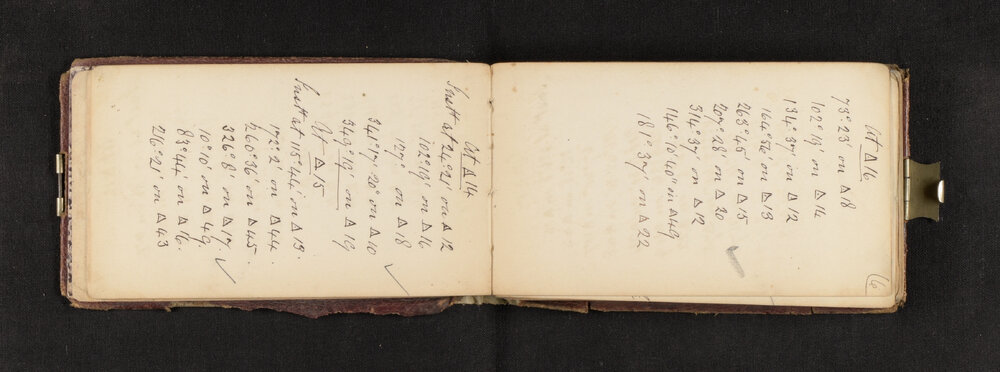 6
At Δ 16
73° 23' on Δ 18
102° 19' on Δ 14
134° 37' on Δ 12
164° 56' on Δ 13
263° 45' on Δ 15
207° 28' on Δ 20
314° 37' on Δ 12
146° 10' 40" on Δ 49
181° 37' on Δ 22
At Δ 14
Inst at 24° 21' on Δ 12
102° 19' on Δ 16
127° on Δ 18
341° 17' 20" on Δ 10
349° 19' on Δ 19
At Δ 15
Inst at 115° 44' on Δ 13.
172° 2' on Δ 44.
260° 36' on Δ 45.
326° 8' on Δ 17.
10° 10' on Δ 49.
83° 44' on Δ 16.
216° 21' on Δ 43